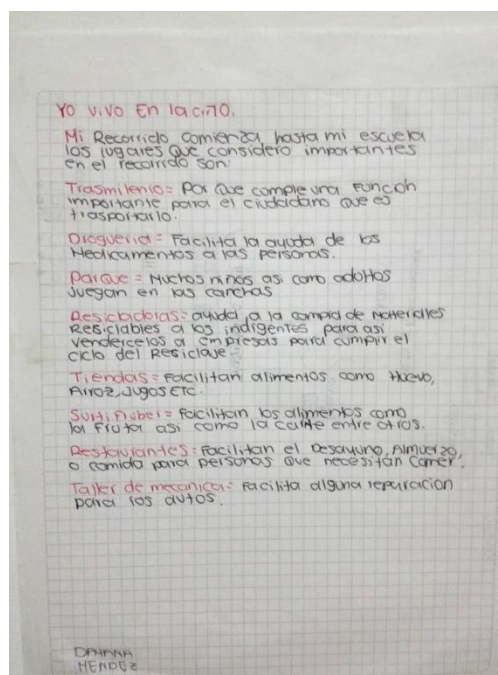 YO VIVO En la cito.
Mi Recorrido comienza hasta mi escuela
los lugares que considero importantes
en el recorrido son:
Trasmilenio = Por Que comple una Función
importante para el ciudadano que es
trasportarlo.
Drogueria = Facilita la ayuda de los
Medicamentos a las personas.
Parque = Muchos niños asi como adoltos
Juegan en las canchas
Resicladoras = ayuda a la compra de Materiales
Resiclables a los indigentes para así
vendercelos a empresas para cumplir el
ciclo del Resiclaje
Tiendas = Facilitan alimentos como Huevo,
Arroz, Jugos ETC.
Surti Fruber = facilitan los alimentos como
la fruta asi como la carne entre otros.
Restaurantes = Facilitan el Desayuno, Almuerzo,
o comida para personas que necesitan comer.
Taller de mecanica = Facilita alguna reparacion
para los autos.
DAHANA
MENDEZ